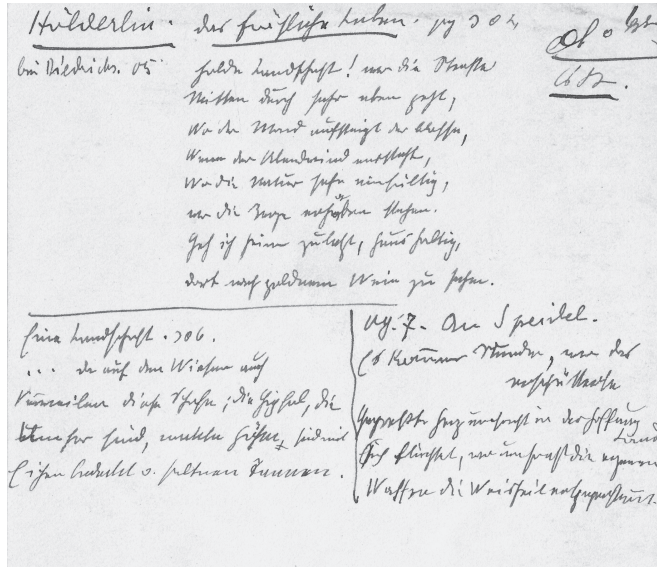 Hölderlin. das fröhliche Leben. pg 304
bei Diedrichs. 05
holde Landschaft! wo die Strasse
Mitten durch sehr eben geht,
Wo der Mond aufsteigt der blasse,
Wenn der Abendwind entsteht,
Wo die Natur sehr einfältig,
wo die Berge erhaben stehen.
Geh ich heim zuletzt, haushältig,
dort nach goldnem Wein zu sehen.
Eine Landschaft. 306.
... da auf den Wiesen auch
Verweilen diese Schafe; die Gipfel, die
ferner sind, nackte Höhen, sind mit
Eichen bedeckt u. seltnen Tannen.
pg. 7. An Speidel.
Es kommen Stunden, wo das
erschütterte
Gepresste Herz umsonst in der Hoffnung
Land
sich flüchtet, wo umsonst die eigenen
Waffen die Weisheit entgegenstemmt.